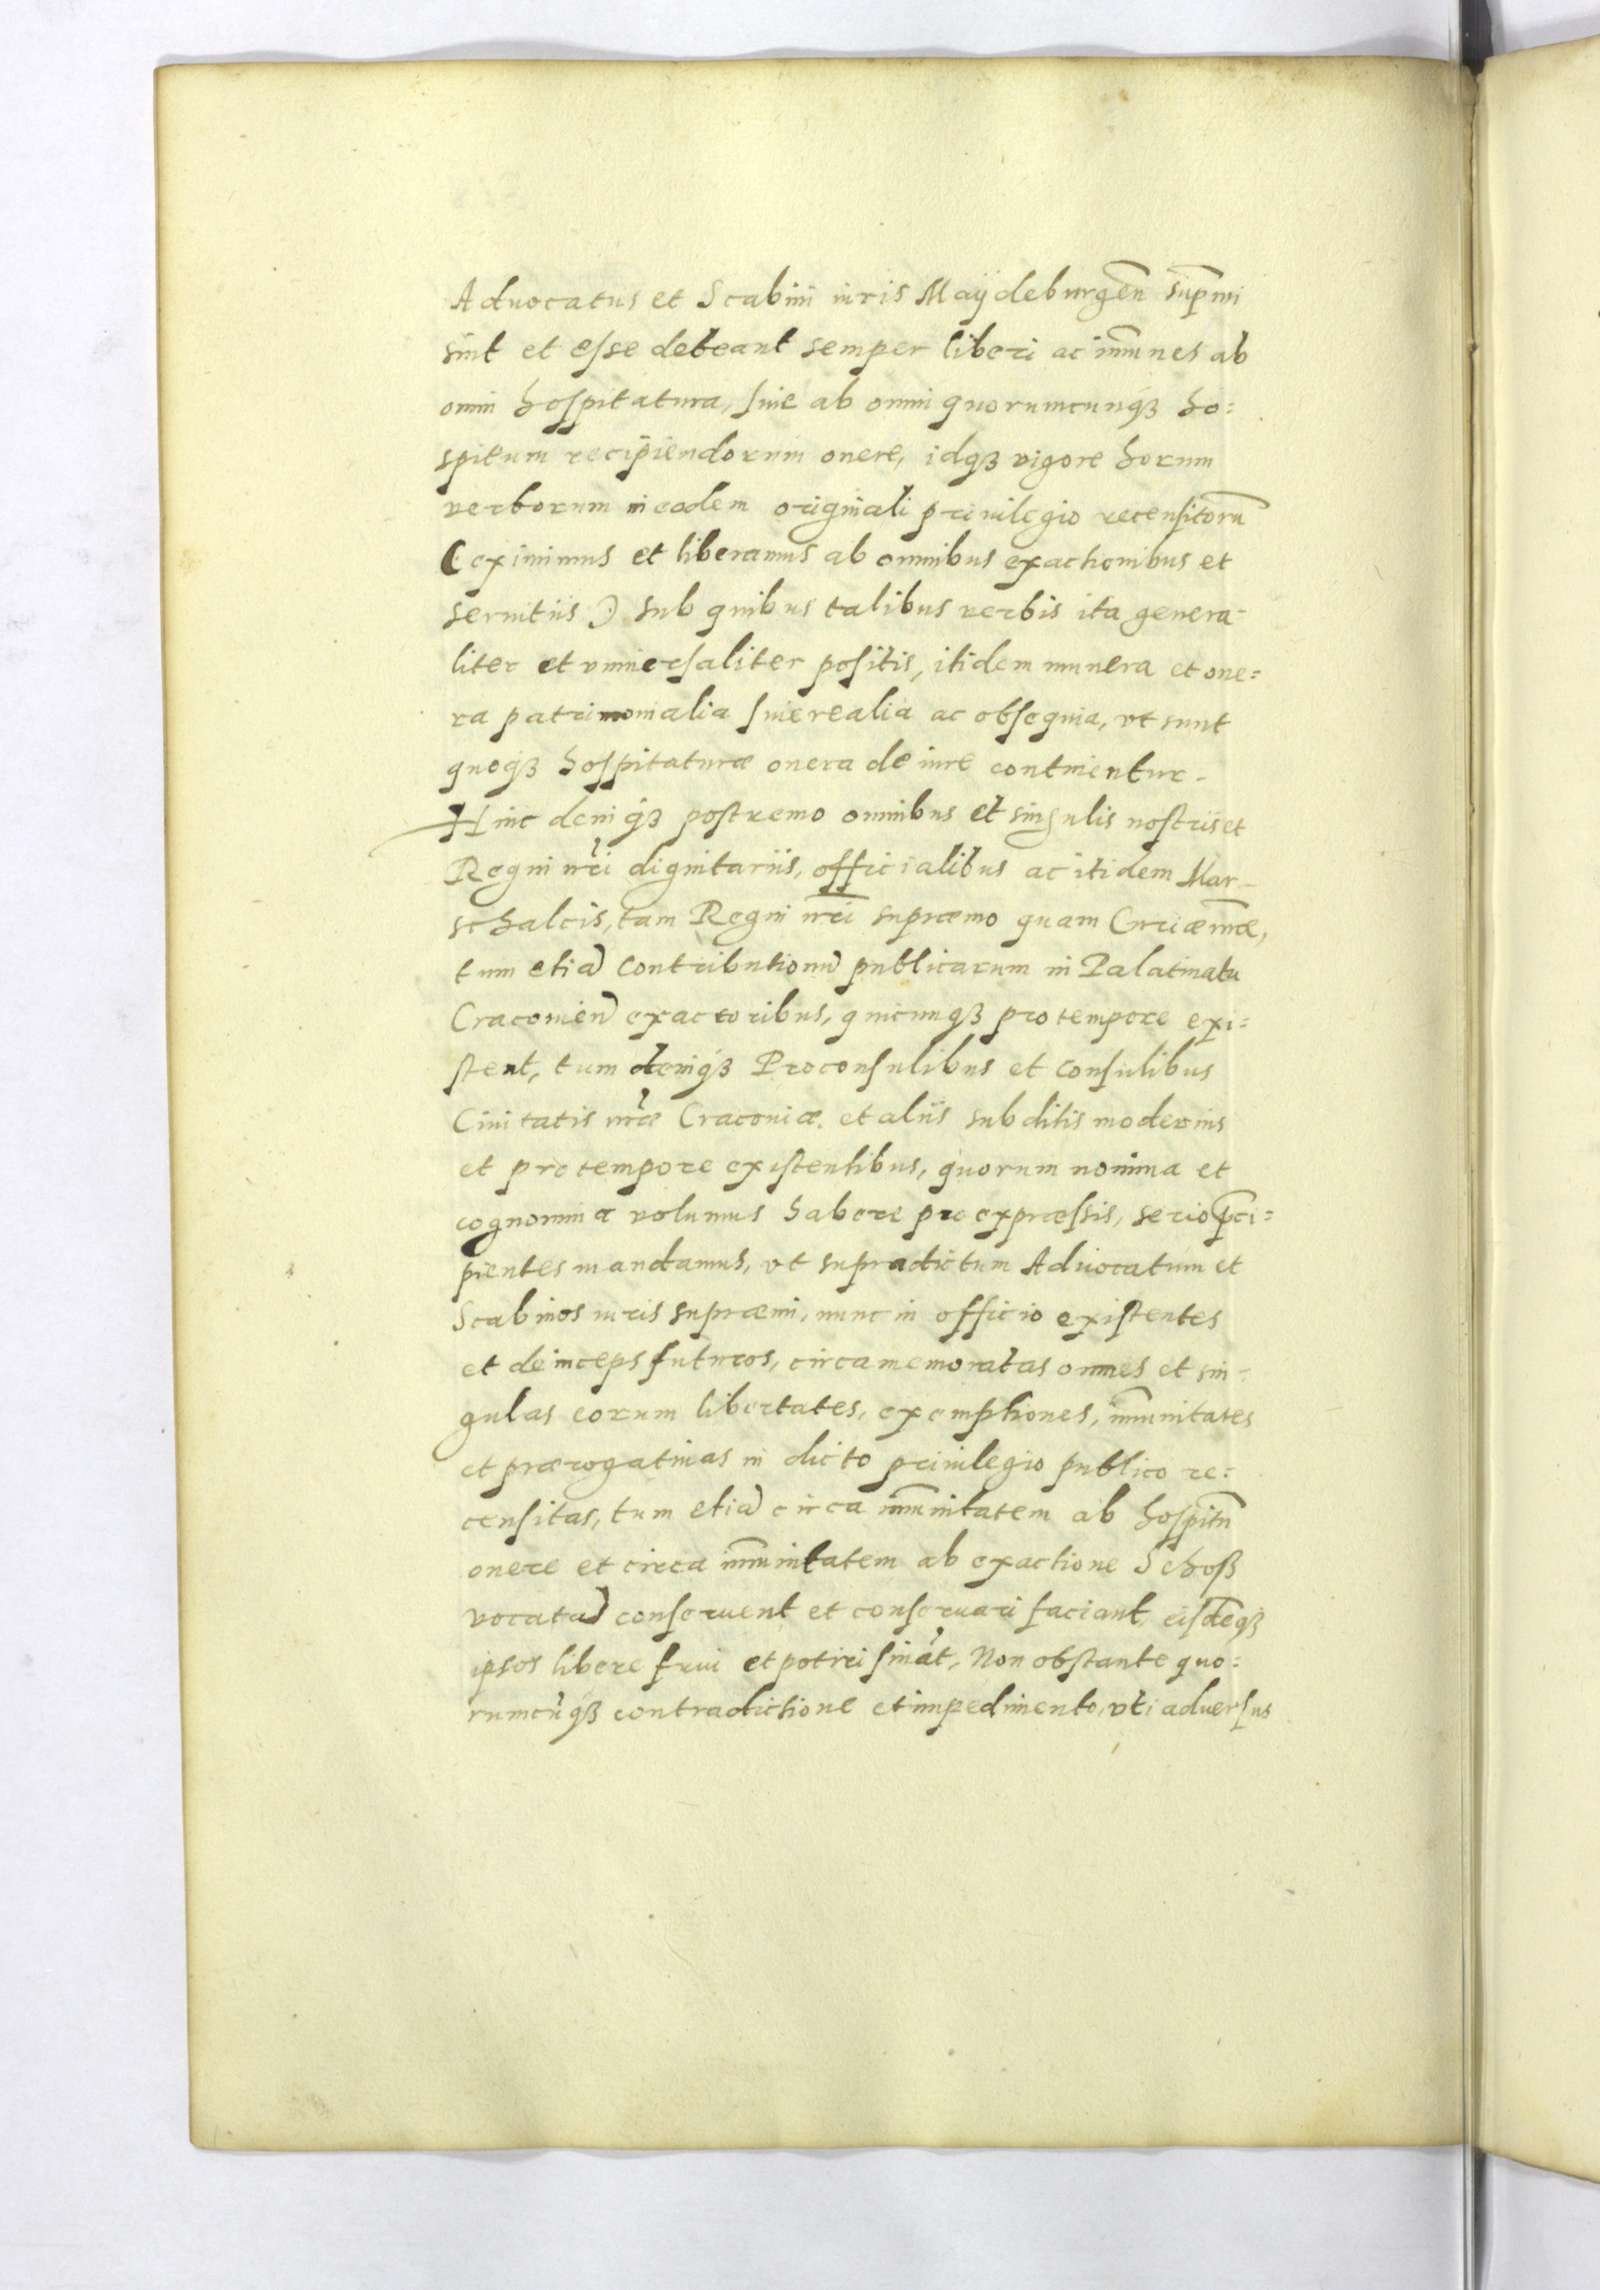 Aduocatus et Scabini iuris Maÿdeburgen̄ sup̄mi
sint et esse debeant semper liberi ac im̄unes ab
omni hospitatura, siue ab omni quorumcunqꝫ ho=
spitum recipiendorum onere, idqꝫ vigore horum
verborum in eodem originali priuilegio recensitorū
(eximimus et liberamus ab omnibus exactionibus et
seruitiis) sub quibus talibus verbis ita genera-
liter et vniuersaliter positis, itidem munera et one=
ra patrimonialia siue realia ac obsequia, vt sunt
quoqꝫ hospitaturæ onera de iure continentur.
Hinc deniqꝫ postremo omnibus et singulis nostris et
Regni nr̄i dignitariis, officialibus ac itidem Mar-
schalcis, tam Regni nr̄i supræmo quam Curiæ nr̄æ,
tum etiā contributionū publicarum in Palatinatu
Cracouien̄ exactoribus, quicunqꝫ pro tempore exi=
stent, tum deniqꝫ Proconsulibus et Consulibus
Ciuitatis nr̄æ Cracouiæ. et aliis subditis modernis
et pro tempore existentibus, quorum nomina et
cognomina volumus habere pro expræssis, serio p̄ci=
pientes mandamus, vt supradictum Aduocatum et
Scabinos iuris supræmi, nunc in officio existentes
et deinceps futuros, circa memoratas omnes et sin=
gulas eorum libertates, exemptiones, im̄unitates
et prærogatiuas in dicto priuilegio publico re=
censitas, tum etiā circa im̄unitatem ab hospitū
onere et circa im̄unitatem ab exactione Schoß
vocatā conseruent et conseruari faciant, eisdēqꝫ
ipsos libere frui et potiri sināt, Non obstante quo=
rumcūqꝫ contradictione et impedimento, vti aduersus